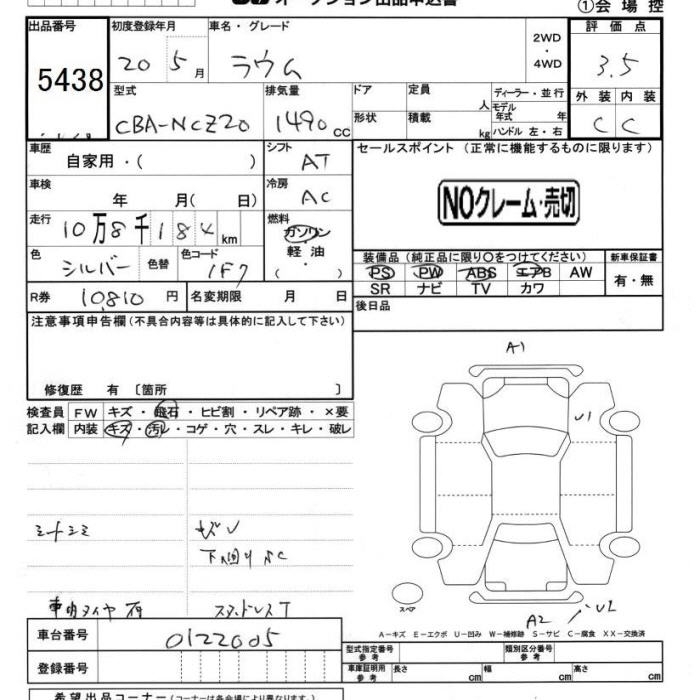 オークション出品申込書
①会場控
出品番号 初度登録年月 車名・グレード 2WD・4WD 評価点
5438 20 5月 ラウム 3.5
型式 排気量 ドア 定員 人 ディーラー・並行 外装 内装
CBA-NCZ20 1490 CC 形状 積載 kg モデル年式 年 ハンドル 左・右 C C
車歴 自家用・( ) シフト AT セールスポイント (正常に機能するものに限ります)
車検 年 月( 日) 冷房 AC NOクレーム・売切
走行 10万8千184km 燃料 ガソリン・軽油・( )
色 シルバー 色替 色コード 1F7 装備品 (純正品に限り○をつけてください) 新車保証書
PS PW ABS エアB AW 有・無
SR ナビ TV カワ
R券 10,810 円 名変期限 月 日 後日品
注意事項申告欄 (不具合内容等は具体的に記入して下さい)
修復歴 有 〔箇所 〕
A1
検査員 FW キズ・飛石・ヒビ割・リペア跡・×要
記入欄 内装 キズ・汚レ・コゲ・穴・スレ・キレ・破レ
U1
シートシミ キズU
下回りSC
車内タイヤ有 スタッドレスT
スペア
A2 U2
A−キズ E−エクボ U−凹み W−補修跡 S−サビ C−腐食 XX−交換済
車台番号 0122005
型式指定番号 類別区分番号
登録番号 車庫証明用参考 長さ cm 幅 cm 高さ cm
希望出品コーナー (コーナーは各会場により異なります)